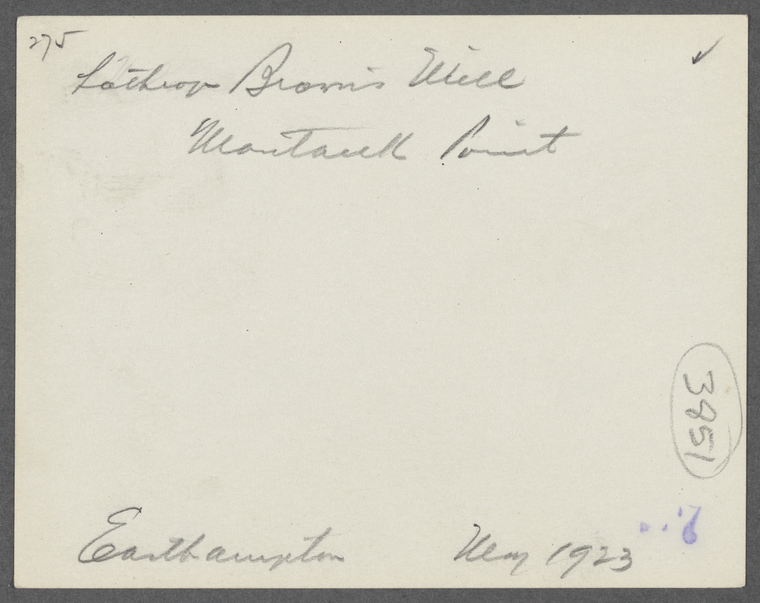 275
Lothrop Brown's Mill
Montauk Point
3851
Easthampton May 1923